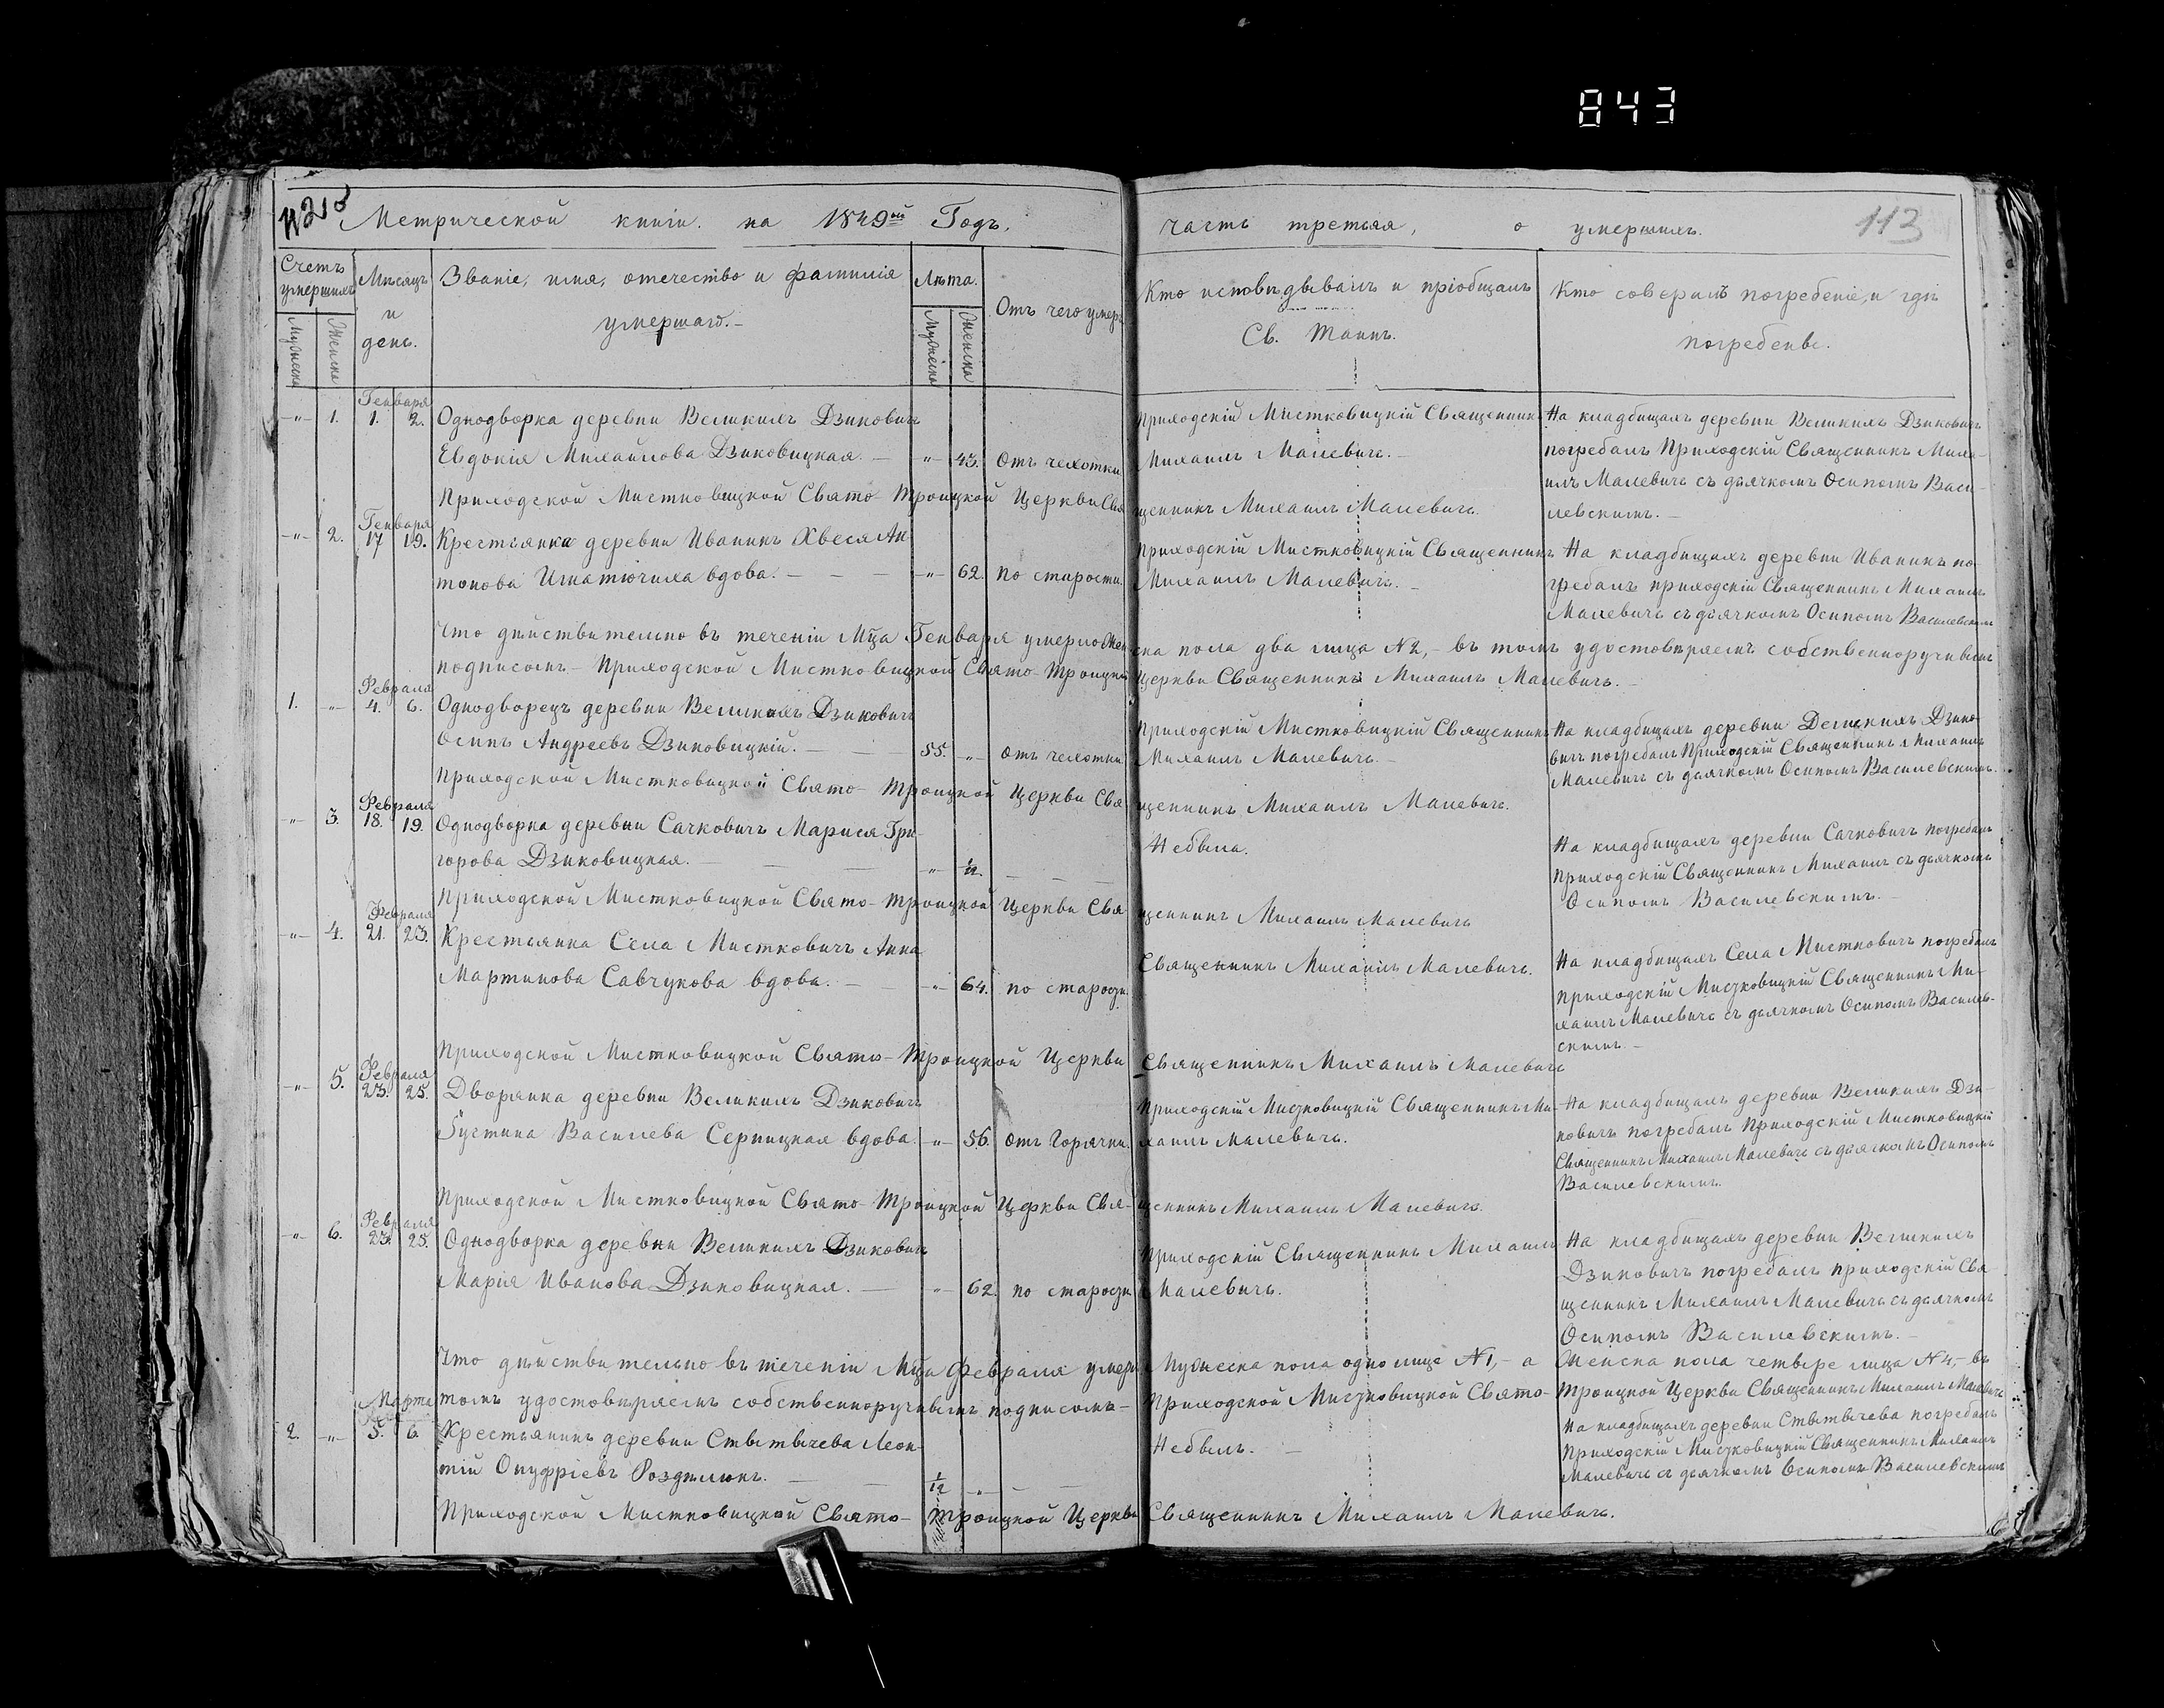 843
113
Метрической книги. на 1849ый Годъ. часть третья, о умершихъ.
Счетъ умершихъ
Мужеска
Женска
Мѣсяцъ и день.
Званіе, имя, отечество и фамилія умершаго.
Лѣта.
Мужеска
Женска
Отъ чего умеръ
Кто исповѣдывалъ и пріобщалъ Св. Таинъ.
Кто совершилъ погребеніе, и гдѣ погребены.
Генваря
-„- 1. 1. 2. Однодворка деревни Великихъ Дзиковичъ
Евдокія Михайлова Дзиковицкая. — -„- 43. отъ чехотки
Приходскій Мистковицкій Священникъ
Михаилъ Малевичъ. —
На кладбищахъ деревни Великихъ Дзиковичъ
погребалъ Приходскій Священникъ Миха-
илъ Малевичъ съ дьячкомъ Осипомъ Васи-
левскимъ. —
Приходской Мистковицкой Свято-Троицкой Церкви Священникъ Михаилъ Малевичъ.
Генваря
-„- 2. 17 19. Крестьянка деревни Иваникъ Хвеся Ан-
тонова Игнатючиха вдова. — -„- 62. по старости.
Приходскій Мистковицкій Священникъ
Михаилъ Малевичъ. —
На кладбищахъ деревни Иваникъ по-
гребалъ приходскій Священникъ Михаилъ
Малевичъ съ дьячкомъ Осипомъ Василевскимъ
Что дѣйствительно въ теченіи Мца Генваря умерло Женска пола два лица N2, — въ томъ удостовѣряемъ собственноручнымъ
подписомъ — Приходской Мистковицкой Свято-Троицкой Церкви Священникъ Михаилъ Малевичъ. —
Февраля
1. -„- 4. 6. Однодворецъ деревни Великихъ Дзиковичъ
Осипъ Андреевъ Дзиковицкій. — 55. -„- отъ чехотки
Приходскій Мистковицкій Священникъ
Михаилъ Малевичъ. —
На кладбищахъ деревни Великихъ Дзико-
вичъ погребалъ Приходскій Священникъ Михаилъ
Малевичъ съ дьячкомъ Осипомъ Василевскимъ.
Приходской Мистковицкой Свято-Троицкой Церкви Священникъ Михаилъ Малевичъ.
Февраля
-„- 3. 18. 19. Однодворка деревни Сачковичъ Марися Гри-
горова Дзиковицкая. —
Небыла.
На кладбищахъ деревни Сачковичъ погребалъ
приходскій Священникъ Михаилъ съ дьячкомъ
Осипомъ Василевскимъ. —
Приходской Мистковицкой Свято-Троицкой Церкви Священникъ Михаилъ Малевичъ
Февраля
-„- 4. 21. 23. Крестьянка Села Мистковичъ Анна
Мартинова Савчукова вдова. — -„- 64. по старости.
Священникъ Михаилъ Малевичъ.
На кладбищахъ Села Мистковичъ погребалъ
приходскій Мистковицкій Священникъ Ми-
хаилъ Малевичъ съ дьячкомъ Осипомъ Василев-
скимъ. —
Приходской Мистковицкой Свято-Троицкой Церкви Священникъ Михаилъ Малевичъ
Февраля
-„- 5. 23. 25. Дворянка деревни Великихъ Дзиковичъ
Густина Василева Серницкая вдова. -„- 56. отъ Горячки.
Приходскій Мистковицкій Священникъ Ми-
хаилъ Малевичъ.
На кладбищахъ деревни Великихъ Дзи-
ковичъ погребалъ Приходскій Мистковицкій
Священникъ Михаилъ Малевичъ съ дьячкомъ Осипомъ
Василевскимъ.
Приходской Мистковицкой Свято-Троицкой Церкви Священникъ Михаилъ Малевичъ.
Февраля
-„- 6. 23. 25. Однодворка деревни Великихъ Дзиковичъ
Марія Иванова Дзиковицкая. — -„- 62. по старости
Приходскій Священникъ Михаилъ
Малевичъ.
На кладбищахъ деревни Великихъ
Дзиковичъ погребалъ приходскій Свя-
щенникъ Михаилъ Малевичъ съ дьячкомъ
Осипомъ Василевскимъ. —
Что дѣйствительно въ теченіи Мца Февраля умерло Мужеска пола одно лице N1, — а Женска пола четыре лица N4, — въ
томъ удостовѣряемъ собственноручнымъ подписомъ — Приходской Мистковицкой Свято-Троицкой Церкви Священникъ Михаилъ Малевичъ
Марта
2. -„- 5. 6. Крестьянинъ деревни Ствытычева Леон-
тій Онуфріевъ Роздялюкъ. — 1/2 -„- —
Небылъ. —
На кладбищахъ деревни Ствытычева погребалъ
Приходскій Мистковицкій Священникъ Михаилъ
Малевичъ съ дьячкомъ Осипомъ Василевскимъ
Приходской Мистковицкой Свято-Троицкой Церкви Священникъ Михаилъ Малевичъ.